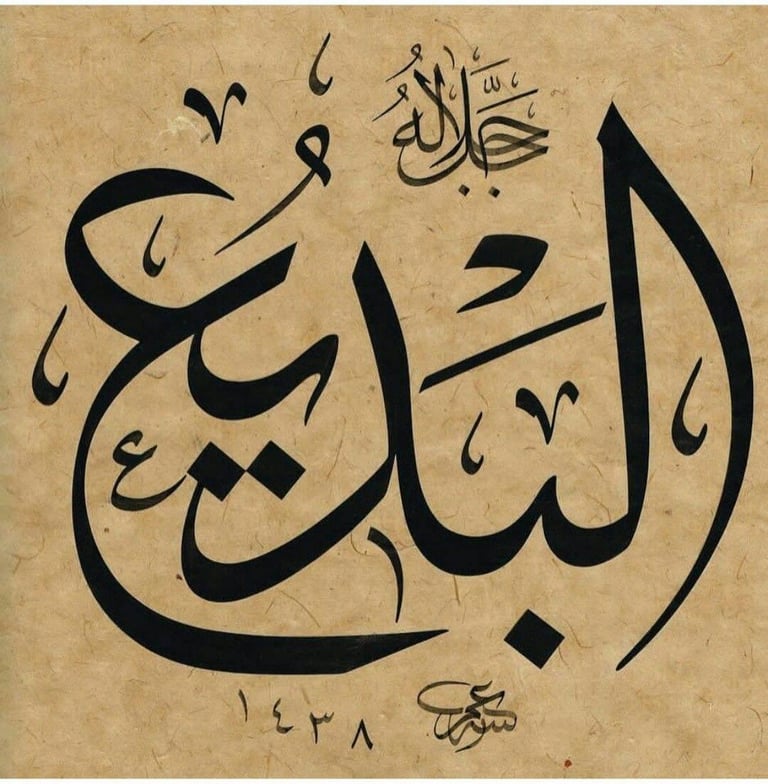 جَلَّ جَلَالُهُ
البَدِيعُ
١٤٣٨